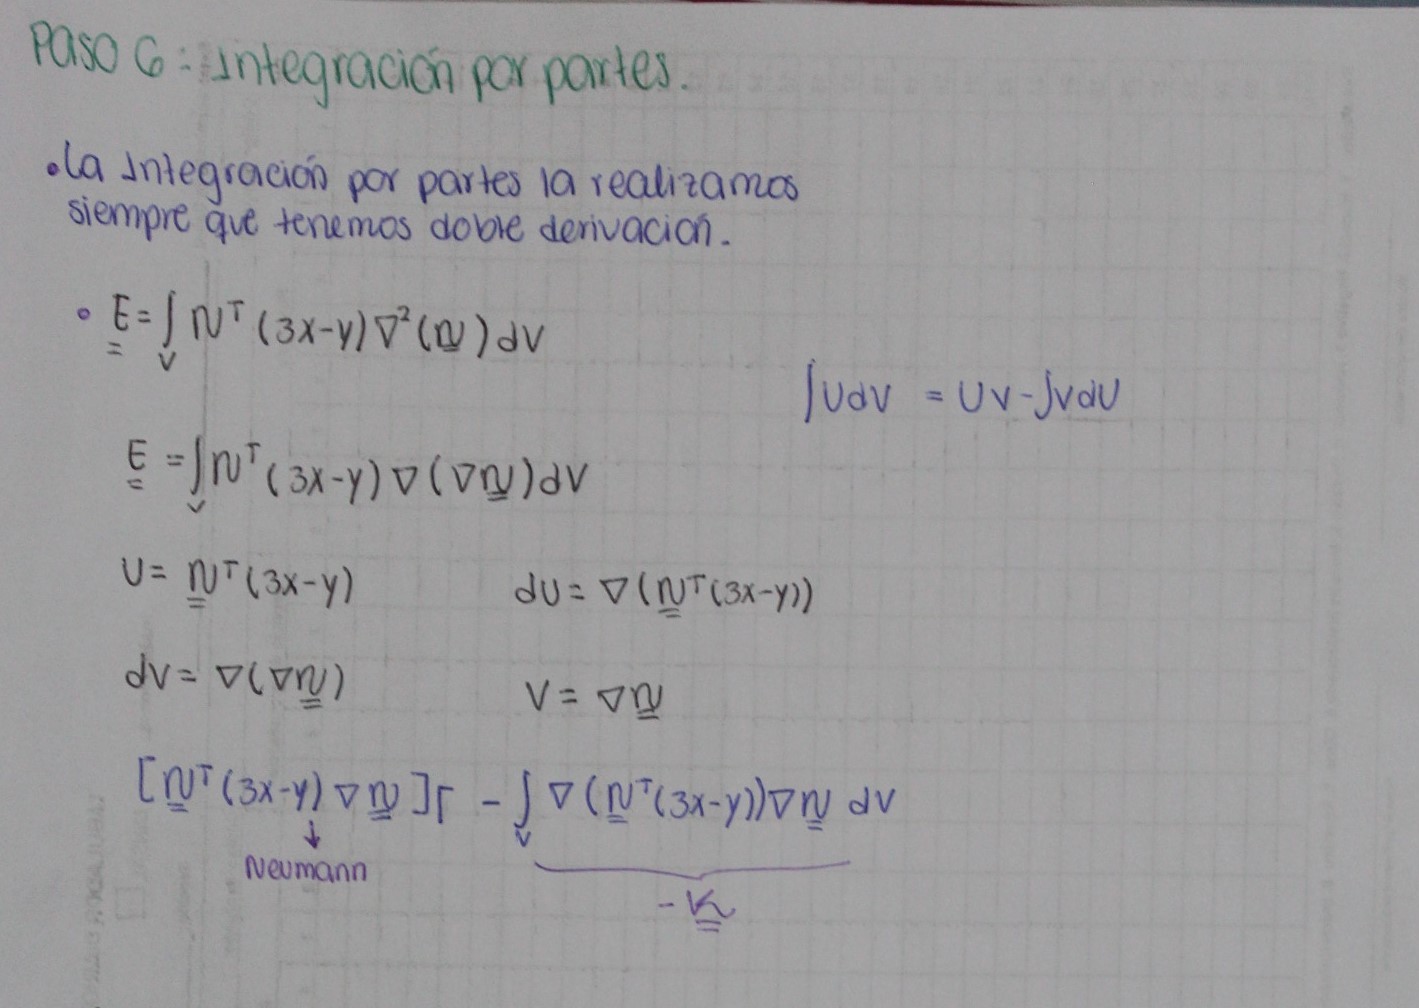 Paso 6: Integración por partes.
• La Integración por partes la realizamos
siempre que tenemos doble derivación.
∘ E = ∫_V N^T (3x-y) ∇²(N) dV
∫UdV = UV - ∫VdU
E = ∫_V N^T (3x-y) ∇(∇N) dV
U = N^T (3x-y) dU = ∇(N^T(3x-y))
dV = ∇(∇N) V = ∇N
[N^T (3x-y) ∇N]Γ - ∫_V ∇(N^T(3x-y))∇N dV
↓
Neumann
-K